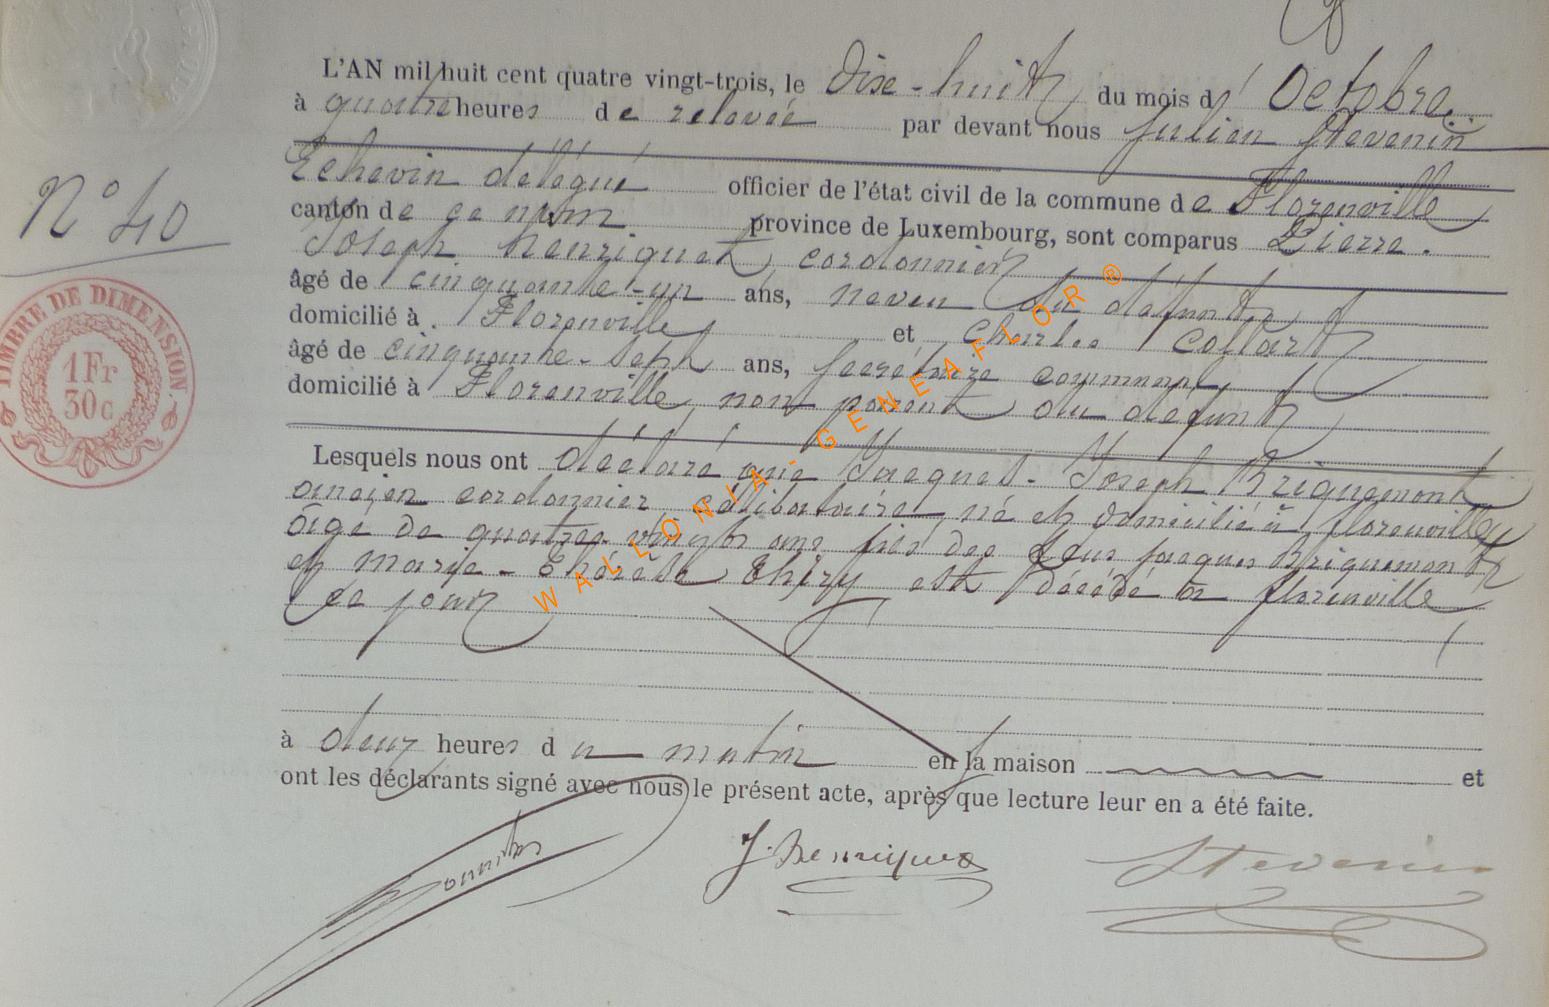 L'AN mil huit cent quatre vingt-trois, le dixe-huit du mois d'Octobre
à quatre heures de relevée par devant nous Julien Stevenin
Echevin délégué officier de l'état civil de la commune de Florenville
canton de ce nom province de Luxembourg, sont comparus Pierre
N° 40
Joseph Henriquet, cordonnier
âgé de cinquante-un ans, neveu du défunt
domicilié à Florenville et Charles Collart
TIMBRE DE DIMENSION.
1Fr
30c
âgé de cinquante-sept ans, secrétaire communal
domicilié à Florenville, non parent du défunt
Lesquels nous ont déclaré que Jacques-Joseph Briquemont
ancien cordonnier célibataire né et domicilié à florenville
âgé de quatre-vingts ans fils des feus jacques Briquemont
et marie-Thérèse Thiry est décédé à florenville
ce jour
à deux heures du matin en la maison et
ont les déclarants signé avec nous le présent acte, après que lecture leur en a été faite.
J. Henriquet
Stevenin
WALLONIA-GENEAFLOR®